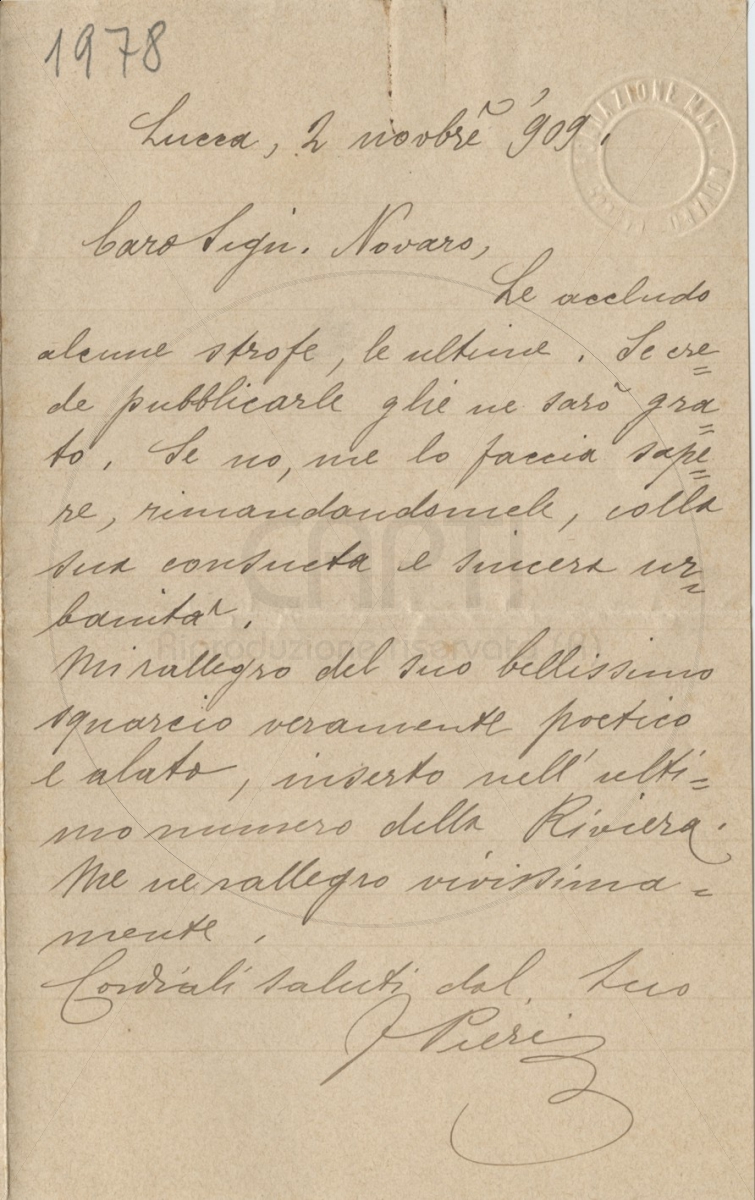 1978
Lucca, 2 novbrẽ '909.
Caro Sign. Novaro,
Le accludo
alcune strofe, le ultime. Se cre=
de pubblicarle glie ne sarò gra=
to. Se no, me lo faccia sape=
re, rimandandomele, colla
sua consueta e sincera ur=
banità.
Mi rallegro del suo bellissimo
squarcio veramente poetico
e alato, inserto nell'ulti=
mo numero della Riviera.
Me ne rallegro vivissima=
mente.
Cordiali saluti dal suo
Pieri
CARTI
Riproduzione riservata (R)